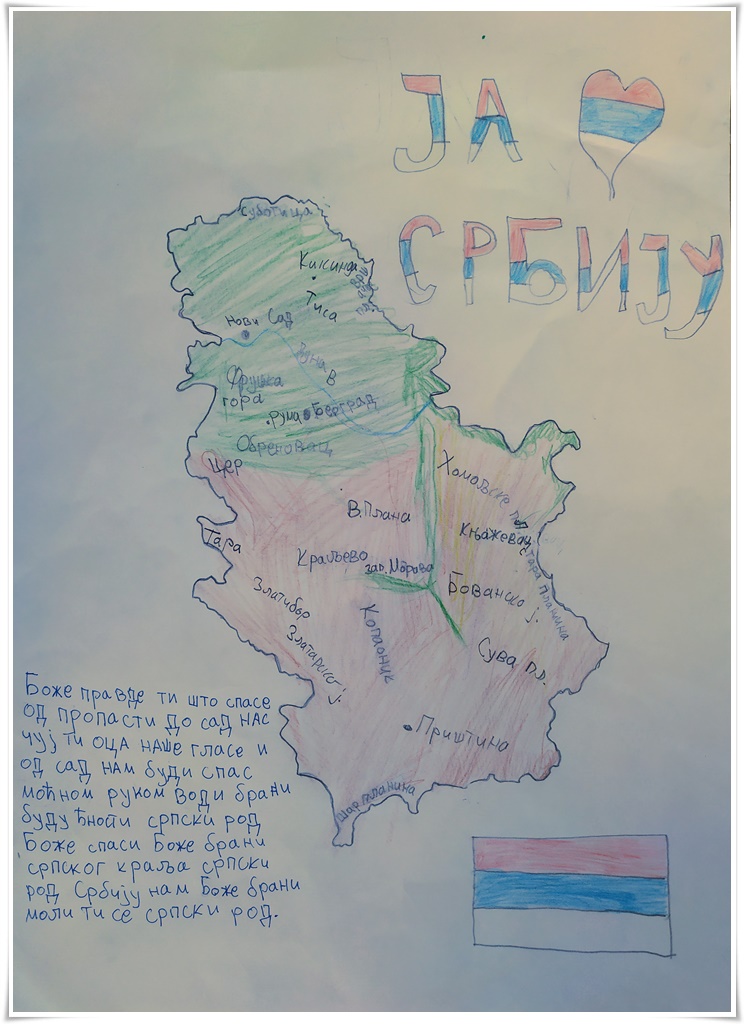 ЈА
СРБИЈУ
Суботица
Кикинда
Тиса
Нови Сад
Дунав
Фрушка
гора
Рума Београд
Обреновац
Цер
В. Плана
Хомољске
Књажевац
Тара
Краљево
зап. Морава
Бованско ј.
Стара Планина
Златибор
Златарско ј.
Копаоник
Сува пл.
Приштина
Шар планина
Боже правде ти што спасе
од пропасти до сад нас
чуј ти оца наше гласе и
од сад нам буди спас
моћном руком води брани
будућности српски род
Боже спаси Боже брани
српског краља српски
род Србију нам Боже брани
моли ти се српски род.